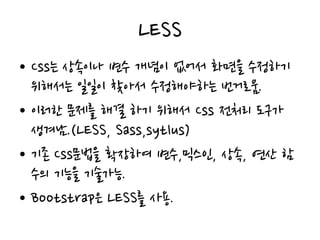 LESS
• CSS는 상속이나 변수 개념이 없어서 화면을 수정하기
위해서는 일일이 찾아서 수정해야하는 번거로움.
• 이러한 문제를 해결 하기 위해서 CSS 전처리 도구가
생겨남.(LESS, Sass,sytlus)
• 기존 CSS문법을 확장하여 변수,믹스인, 상속, 연산 함
수의 기능을 기술가능.
• Bootstrap은 LESS를 사용.